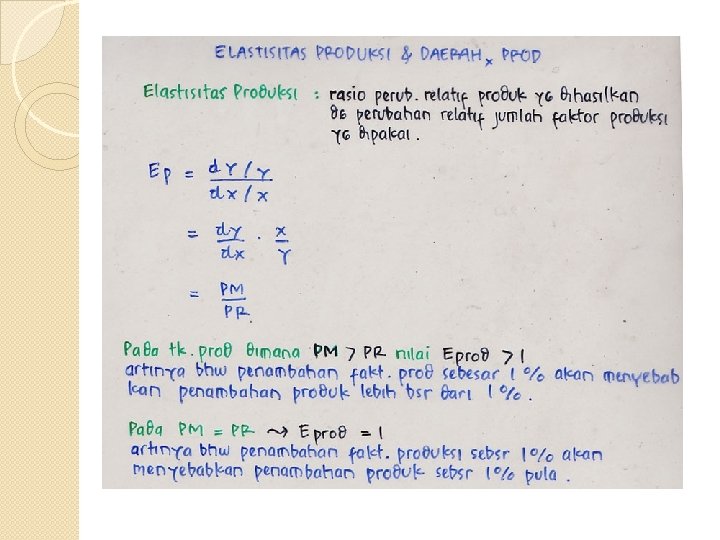 ELASTISITAS PRODUKSI & DAERAH x PROD
Elastisitas Produksi : rasio perub. relatif produk yg dihasilkan
dg perubahan relatif jumlah faktor produksi
yg dipakai.
Ep = dY/Y
dx/x
= dy . x
dx Y
= PM
PR.
Pada tk. prod dimana PM > PR nilai Eprod > 1
artinya bhw penambahan fakt. prod sebesar 1% akan menyebab
kan penambahan produk lebih bsr dari 1%.
Pada PM = PR ⤳ Eprod = 1
artinya bhw penambahan fakt. produksi sebsr 1% akan
menyebabkan penambahan produk sebsr 1% pula.